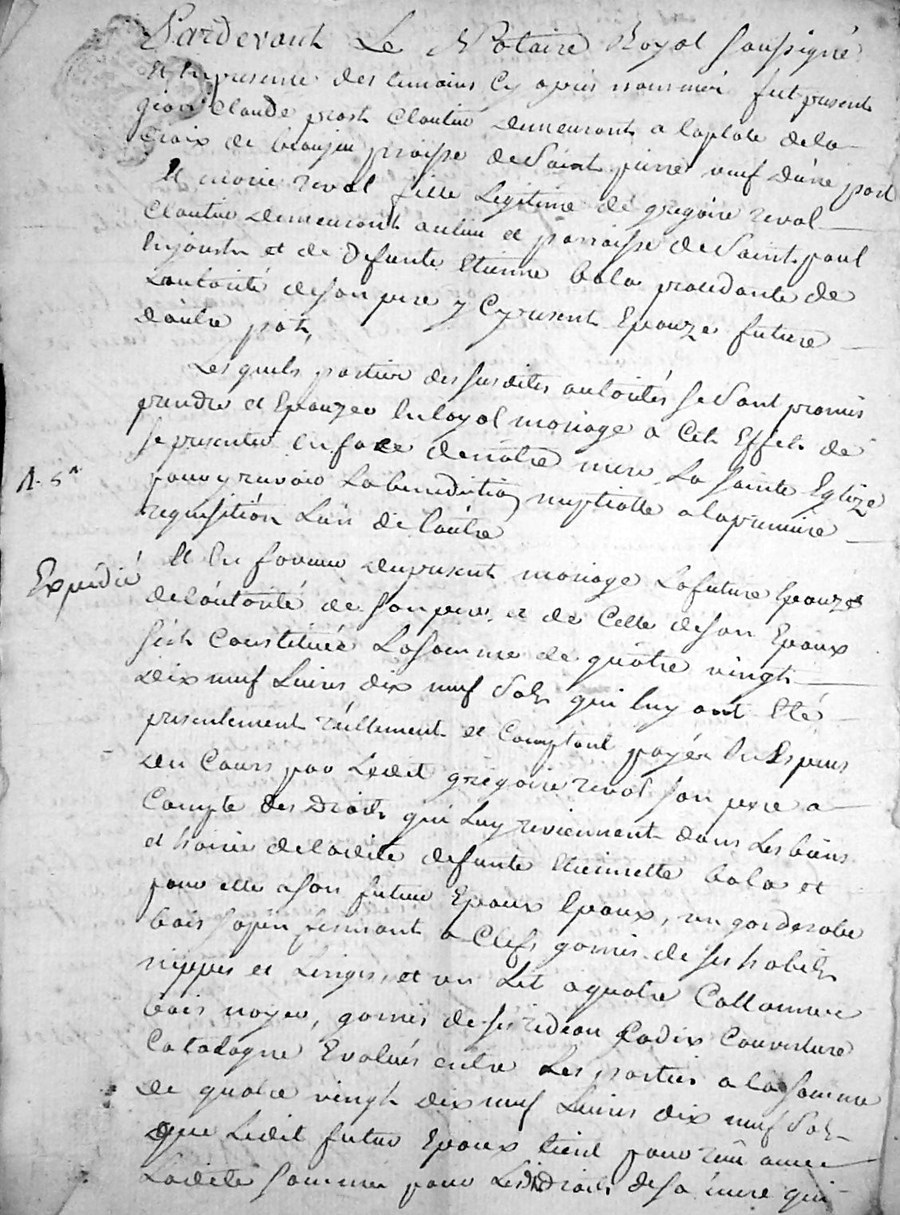 Pardevant Le Notaire Royal soussigné
Et En presence des temoins Cy apres nommés fut present
jean Claude prost Cloutier demeurant a laplate dela
Croix de beaujeu proisse de Saint pierre veuf d'une part
Et marie reval fille Legitime de gregoire reval
Cloutier demeurant au lieu et parroisse de Saint paul
Enjarestz et de defunte Etienne bala procedante de
Lautorité deson pere y Cypresent Epouze future
d'autre part,
Lesquels parties des susdites autorités se Sont promis
prendre et Epouzer En loyal mariage a Cet Effet de
se presenter En face denotre mere La Sainte Eglize
pour y recevoir La benediction nuptialle a la premiere
requisition Lun de l'autre
1. 5ˢ
Expédié
Et En faveur dupresent mariage La future Epouze
de l'autorité de son pere et de Celle deson Epoux
s'est Constituée La somme de quatre vingt
dix neuf Livres dix neuf Sols qui luy ont Eté
presentement réellement et Comptant payée En Especes
du Cours par Ledit gregoire reval son pere a
Compte des Droits qui Luy reviennent dans Les biens
et hoirie deladite defunte Etiennette bala et
pour elle ason futeur Epoux Epoux, un garderobe
bois sapin fermant a Clefs garnis de ses habits
nippes et Linges, et un Lit a quatre Collonnes
bois noyer, garnis de ses rideau Cadix Couverture
Catalogne Evalués entre Les parties a la somme
de quatre vingt dix neuf Livres dix neuf Sols
que Ledit futur Epoux tient pour recu avec
Ladite somme pour Lesdits Droits de sa mere qui